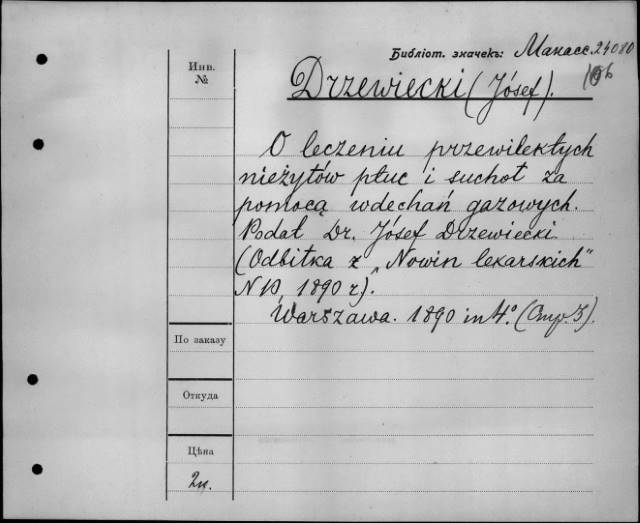 Библіот. значекъ: Манасс. 24080
Инв.
№
Drzewiecki (Jósef).
O leczeniu przewilektych
nieżytów płuc i suchot za
pomocą wdechań gazowych.
Podał Dr. Jósef Drzewiecki
(Odbitka z „Nowin lekarskich"
N 10 1890 r.).
Warszawa. 1890 in 4°. (Стр. 3).
По заказу
Откуда
Цѣна